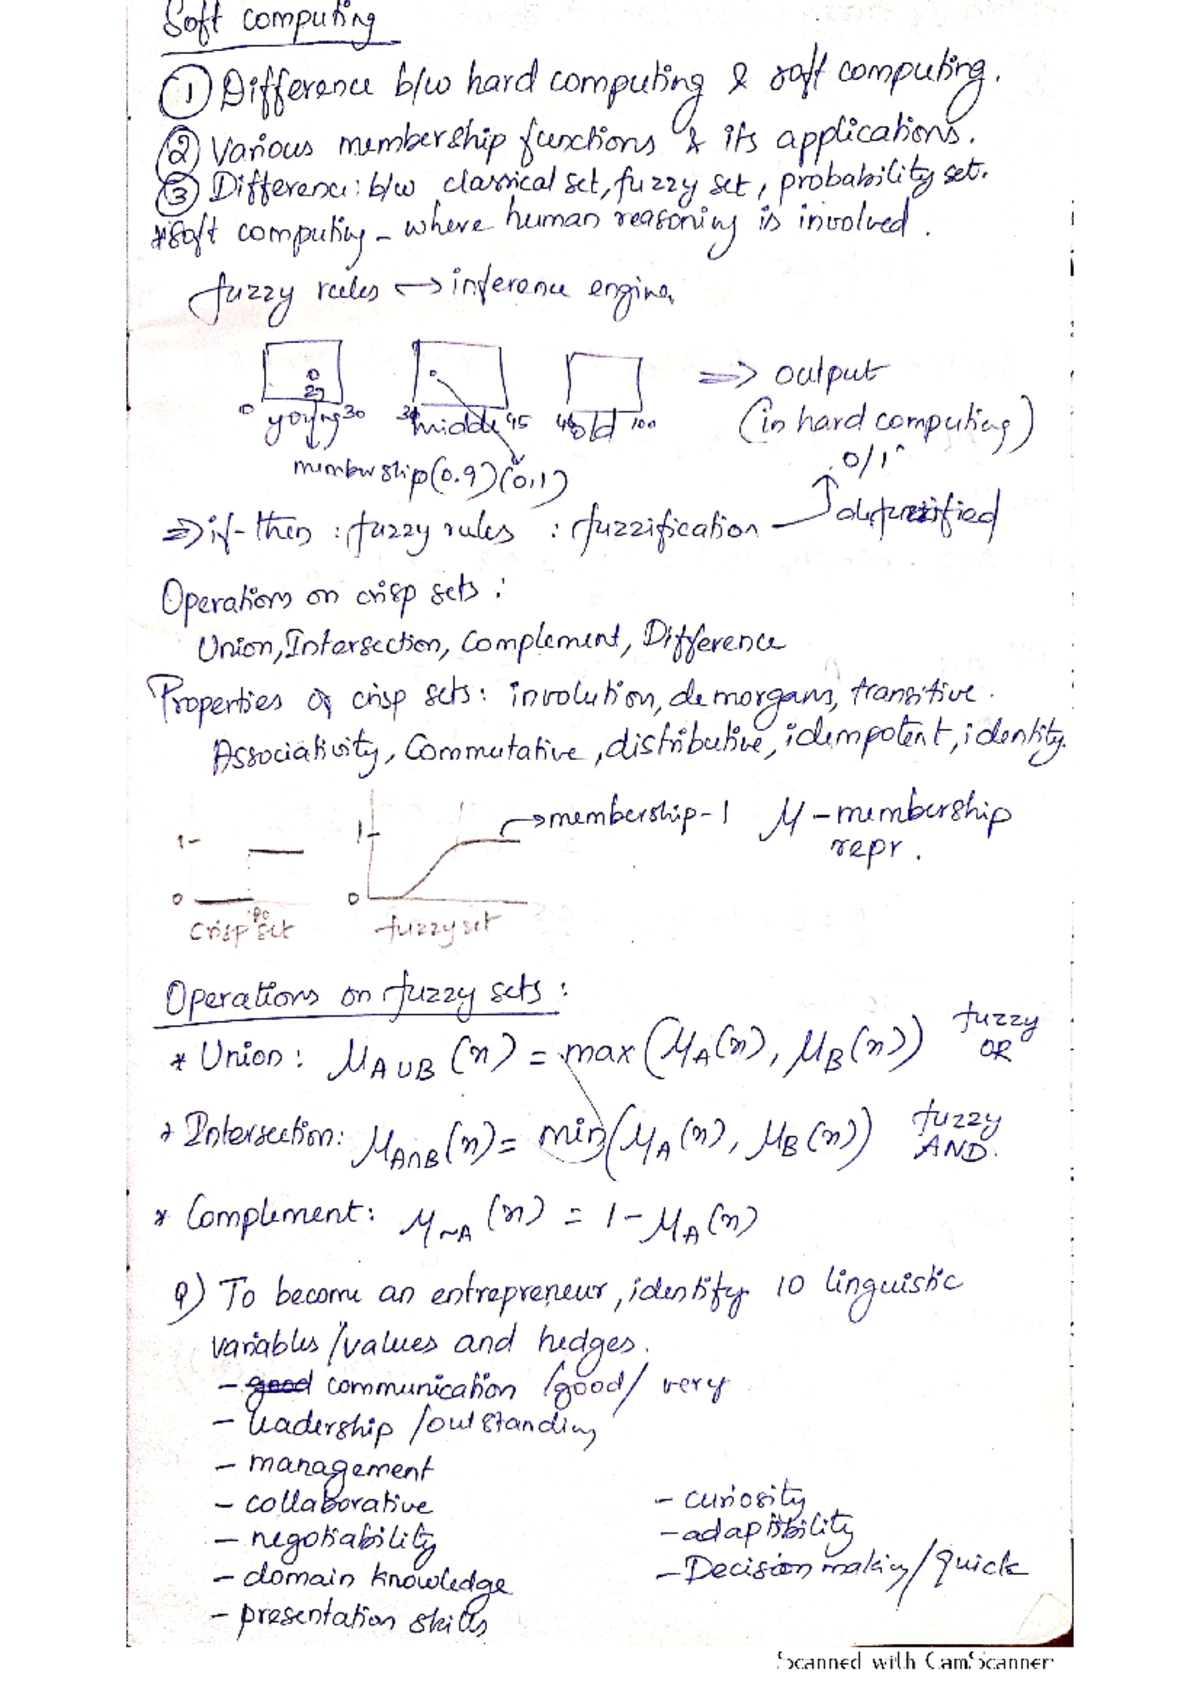 Soft computing
① Difference b/w hard computing & soft computing.
② Various membership functions & its applications.
③ Difference: b/w classical set, fuzzy set, probability set.
*Soft computing - where human reasoning is involved.
fuzzy rules ↔ inference engine,
27
0 young 30 middle 45 old 100
⇒ output
(in hard computing)
0/1
membership (0.9) (0.1)
⇒ if-then : fuzzy rules : fuzzification
Operations on crisp sets :
Union, Intersection, Complement, Difference
Properties of crisp sets: involution, demorgans, transitive.
Associativity, Commutative, distributive, idempotent, identity.
1 1 → membership-1 μ - membership
repr.
0 0
crisp set fuzzy set
Operations on fuzzy sets :
* Union : μA∪B (x) = max (μA(x), μB(x)) fuzzy OR
* Intersection: μA∩B (x) = min (μA(x), μB(x)) fuzzy AND.
* Complement: μ~A (x) = 1 - μA(x)
Q) To become an entrepreneur, identify 10 linguistic
variables /values and hedges.
- good communication /good/ very
- leadership /outstanding
- management
- collaborative
- negotiability
- domain knowledge
- presentation skills
- curiosity
- adaptibility
- Decision making/quick
Scanned with CamScanner